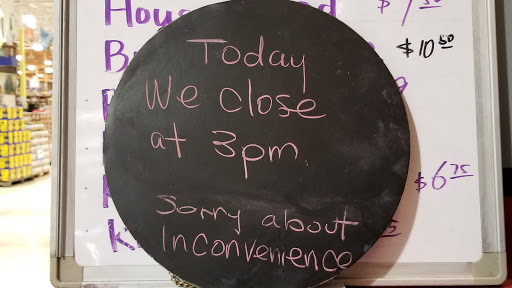 Today
We close
at 3pm
Sorry about
Inconvenience
$10.50
$6.75